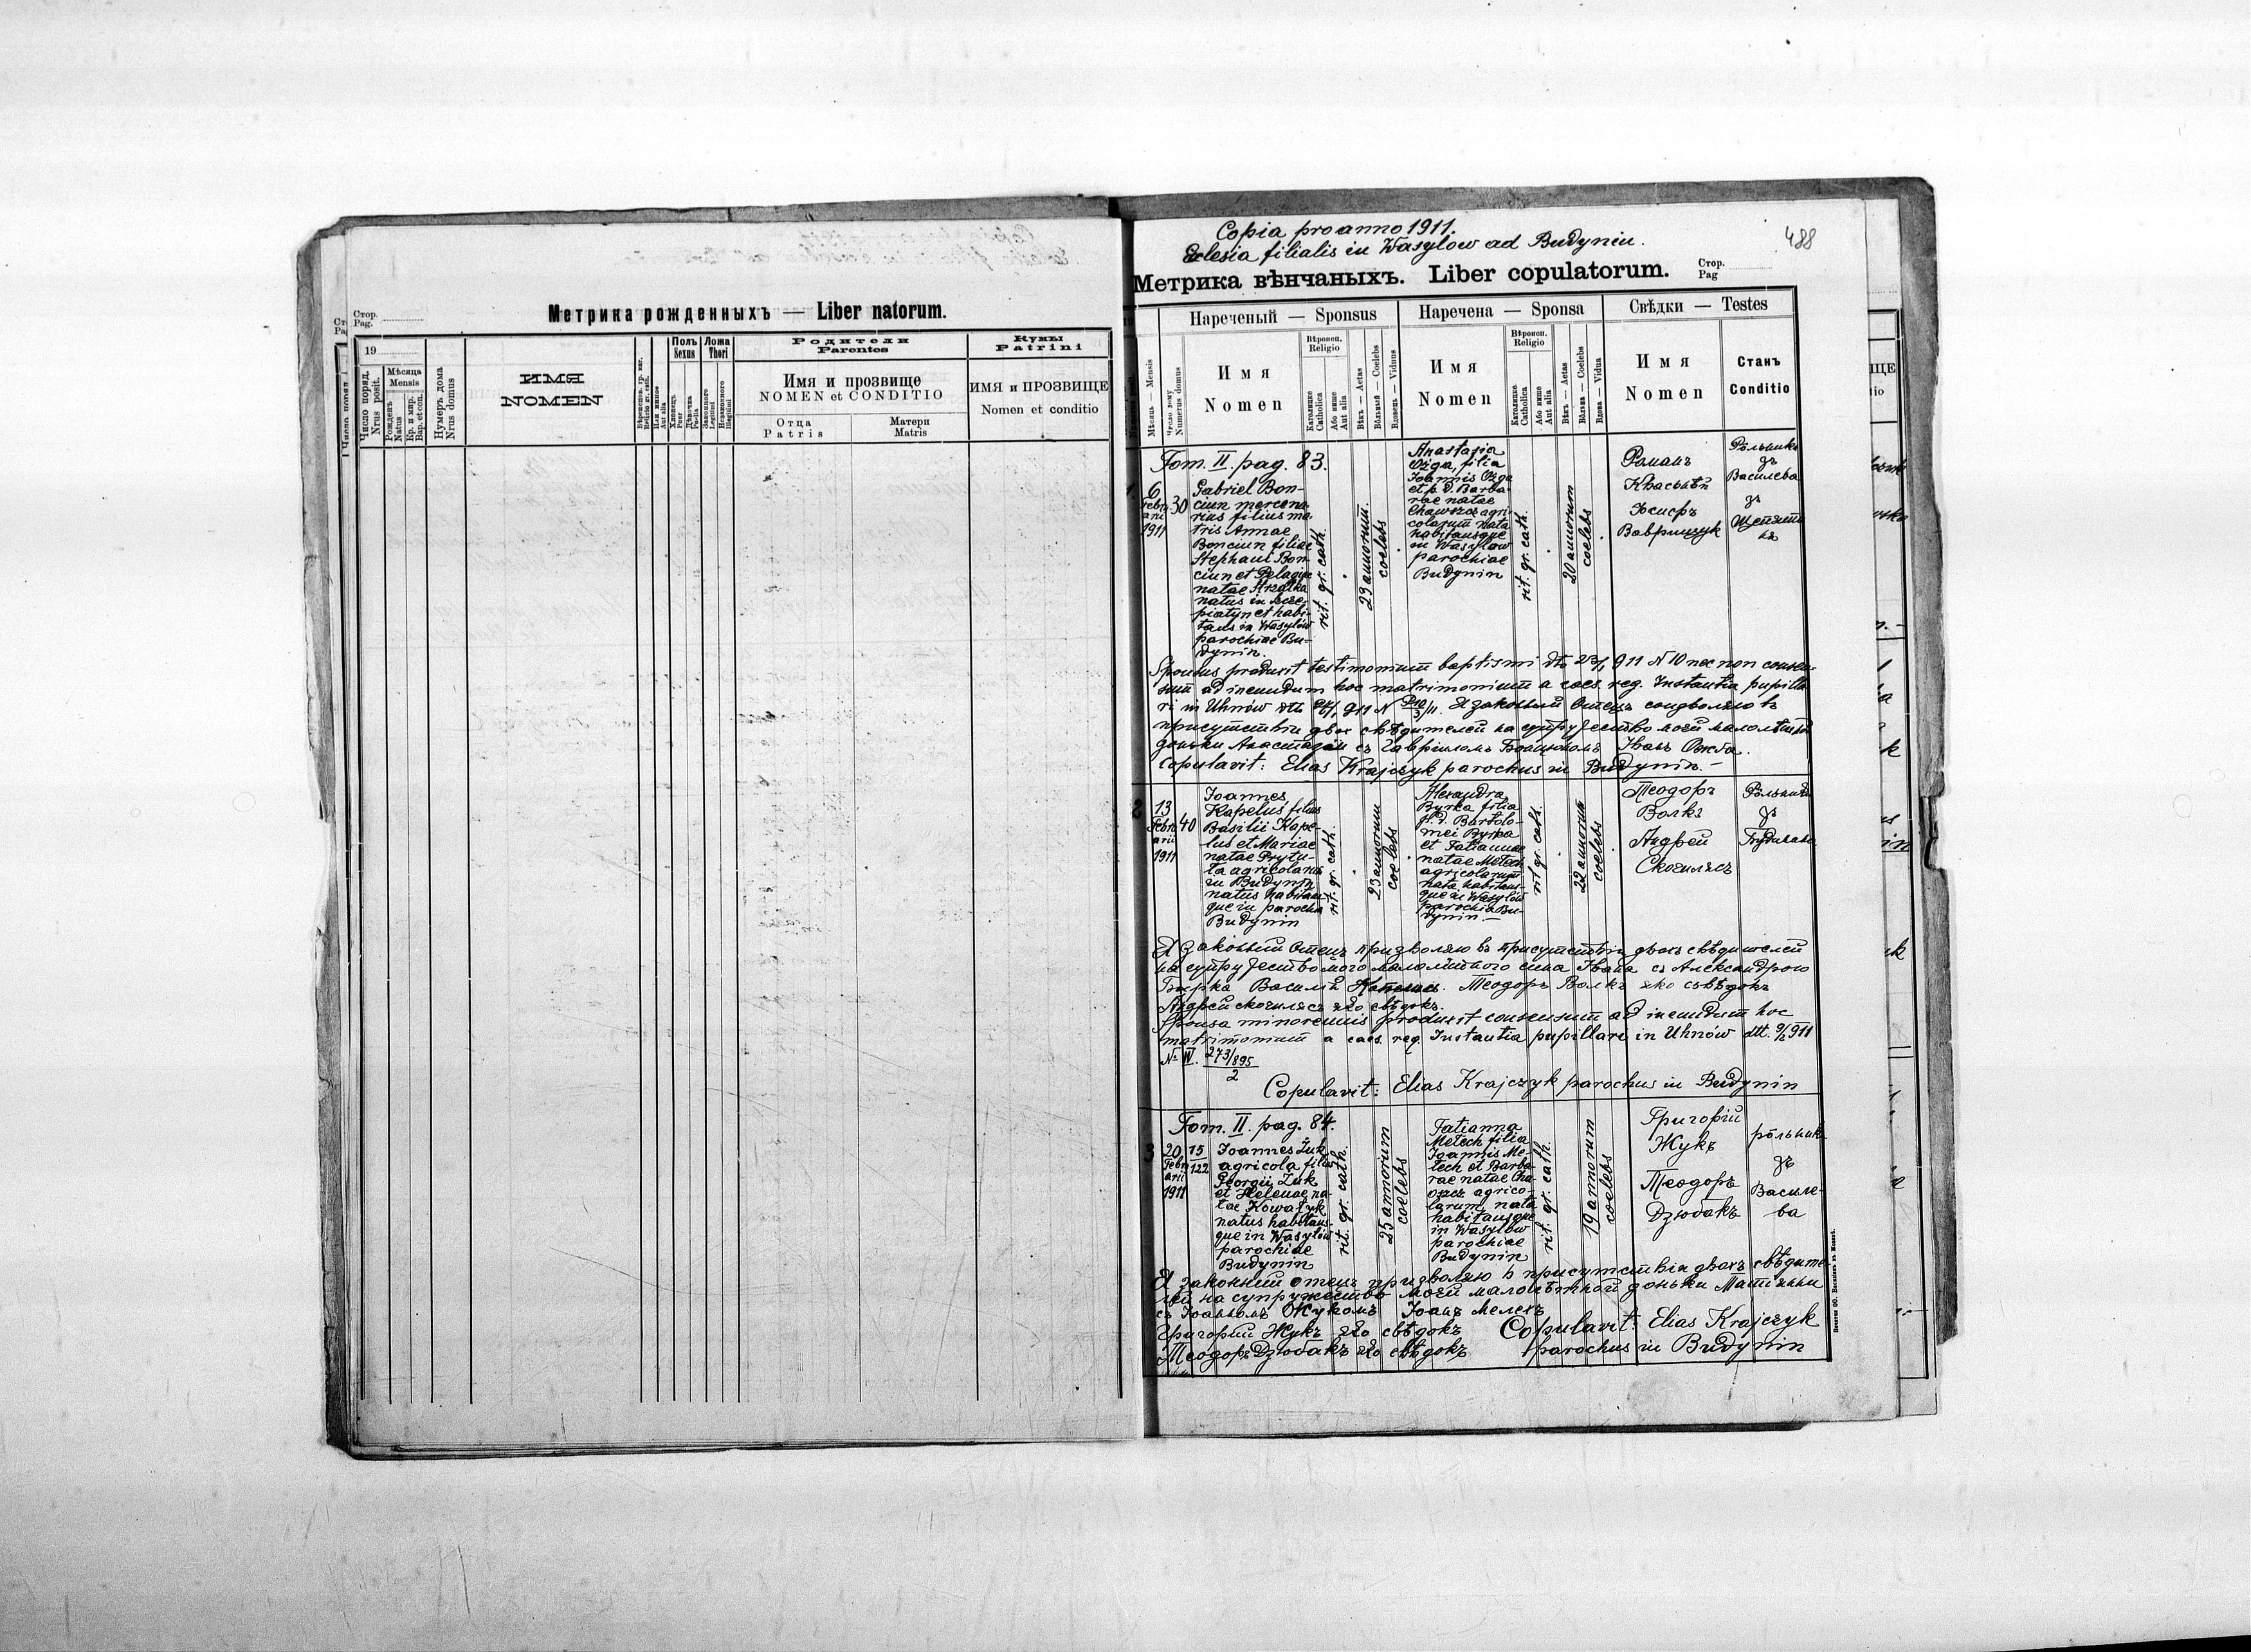 Стор.
Pag.
Метрика рожденныхъ — Liber natorum.
19
Число поряд.
Nrus posit.
Мѣсяца
Mensis
Рожденъ
Natus
Кр. и мѵр.
Bap. et con.
Нумеръ дома
Nrus domus
ИМЯ
NOMEN
Или иначе
Aut alia
Полъ
Sexus
Хлопець
Puer
Дѣвочка
Puella
Ложа
Thori
Законного
Legitimi
Незаконного
Illegitimi
Родители
Parentes
Имя и прозвище
NOMEN et CONDITIO
Отца
Patris
Матери
Matris
Кумы
Patrini
ИМЯ и ПРОЗВИЩЕ
Nomen et conditio
Copia pro anno 1911.
Eclesia filialis in Wasylow ad Budynin.
488
Метрика вѣнчаныхъ. Liber copulatorum.
Стор.
Pag
Мѣсяць — Mensis
Число дому
Numerus domus
Нареченый — Sponsus
Имя
Nomen
Вѣроисп.
Religio
Католице
Catholica
Або инше
Aut alia
Вѣкъ — Aetas
Вôльный — Coelebs
Вдовець — Viduus
Наречена — Sponsa
Имя
Nomen
Вѣроисп.
Religio
Католице
Catholica
Або инше
Aut alia
Вѣкъ — Aetas
Вôльна — Coelebs
Вдова — Vidua
Свѣдки — Testes
Имя
Nomen
Станъ
Conditio
Tom. II. pag. 83.
6
Febru
arii
1911
30
Gabriel Bon-
ciun mercena-
rius filius ma-
tris Annae
Bonciun filiae
Stephani Bon-
ciun et Pelagiae
natae
natus in
piatyn et habi-
tans in Wasylów
parochiae Bu-
dynin.
rit. gr. cath.
23 annorum
coelebs
Anastasia
Ożga, filia
Joannis Ożga
et p. d. Barba-
rae natae
agri-
colarum nata
habitansque
in Wasylow
parochiae
Budynin
rit. gr. cath.
20 annorum
coelebs
Романъ
Вавришук
Рôльники
зъ
Василева
зъ
Sponsus produxit testimonium baptismi dto 23/1 911 N 10 nec non consen-
sum ad ineundum hoc matrimonium a caes. reg. Instantia pupilla-
ri in Uhnów dto 911 N Я законный Отець соизволяю въ
присутствіи двох свѣдителей на супружество моей малолѣтной
доньки Анастазіи съ Гавріиломъ Бонцюномъ Іванъ Ожга.
Copulavit: Elias Krajczyk parochus in Budynin. -
2
13
Febru
arii
1911
40
Joannes
Kapelus filius
Basilii Kape-
lus et Mariae
natae Prytu-
ła agricolarum
in Budynin
natus habitans-
que in parochia
Budynin
rit. gr. cath.
23 annorum
coelebs
Alexandra
Byrka filia
p. d. Bartolo-
mei Byrka
et Tatiannae
natae Metech
agricolarum
nata habitans-
que in Wasylów
parochia Bu-
dynin. —
rit gr. cath.
22 annorum
coelebs
Теодоръ
Волкъ
Андрей
Скочилясъ
Рôльники
зъ
Будинина
Я законный Отець призволяю въ присутствіи двохъ свѣдителей
на супружество мого малолѣтного сина Ивана съ Александрою
Бирка Василій Капелюс. Теодоръ Волкъ яко свѣдокъ
Андрей Скочилясъ яко свѣдокъ.
Sponsa minorennis produxit consensum ad ineundum hoc
matrimonium a caes. reg. Instantia pupillari in Uhnów dtt. 9/2 911
№ IV. 273/895
2
Copulavit: Elias Krajczyk parochus in Budynin
Tom. II. pag. 84.
3
20
Febru
arii
1911
15
122
Joannes Żuk
agricola filius
Georgii Żuk
et Helenae na-
tae Kowalyk
natus habitans-
que in Wasylów
parochiae
Budynin
rit. gr. cath.
25 annorum
coelebs
Tatianna
Metech filia
Joannis Me-
tech et Barba-
rae natae Cha-
agrico-
larum, nata
habitansque
in Wasylów
parochiae
Budynin
rit. gr. cath.
19 annorum
coelebs
Григорій
Жукъ
Теодоръ
Дзюбакъ
рôльники
зъ
Василе-
ва
Я законный отець призволяю в присутствіи двохъ свѣдите-
лей на супружество моей малолѣтной доньки Татіянны
съ Іоанномъ Жукомъ Іоанъ Мелехъ
Григорій Жукъ яко свѣдокъ Copulavit: Elias Krajczyk
Теодоръ Дзюбакъ яко свѣдокъ parochus in Budynin